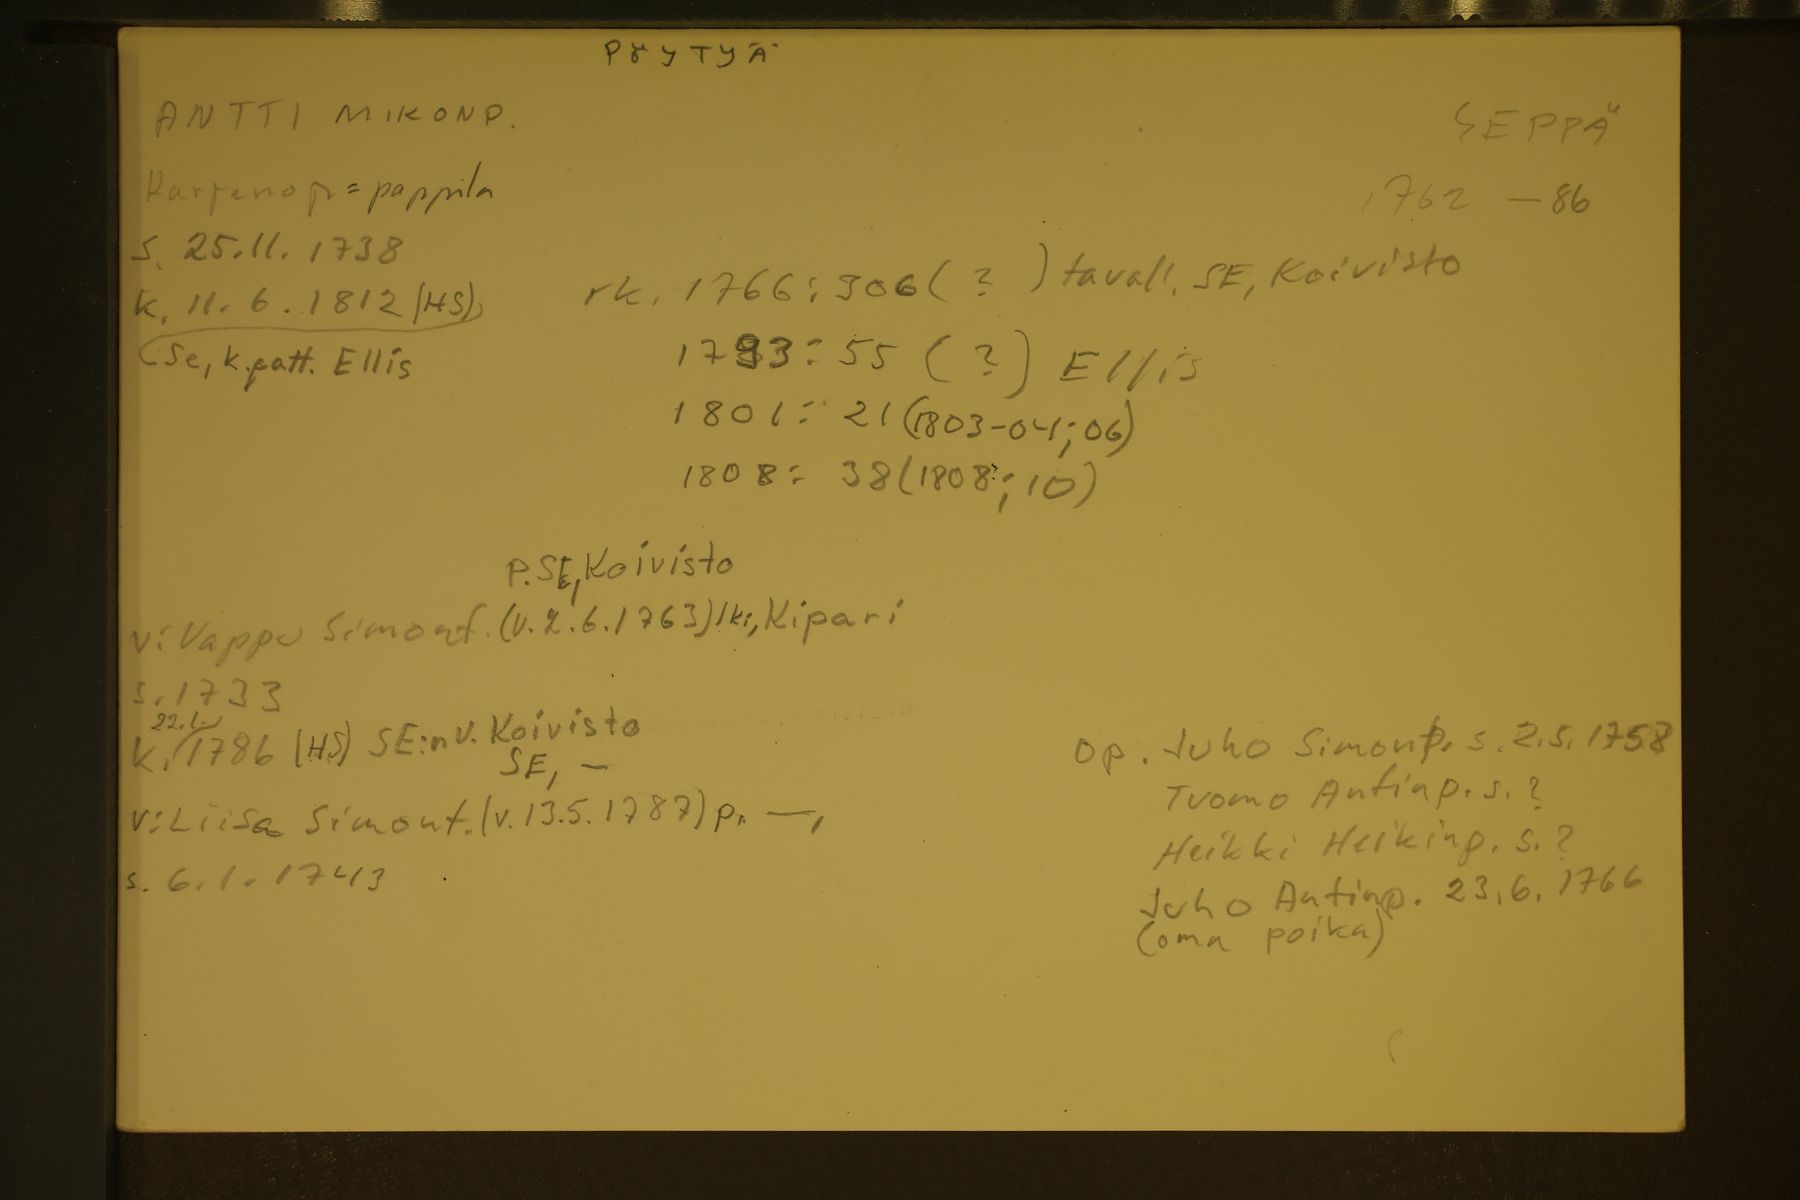 PÖYTYÄ
ANTTI MIKONP.
SEPPÄ
= pappila
1762 — 86
s. 25.11. 1738
k. 11. 6. 1812 (HS)
rk. 1766: 306 ( ? ) tavall. SE, Koivisto
(Se, k.patt. Ellis
1793: 55 ( ? ) Ellis
1801: 21 (1803-04; 06)
1808: 38 (1808; 10)
P. SE, Koivisto
v: Vappu Simont. (v. 2.6.1763) lki, Kipari
s. 1733
22.1.
k. 1786 (HS) SE:n v. Koivisto
SE, —
v: Liisa Simont. (v. 13.5.1787) p. —,
s. 6.1. 1743
op. Juho Simonp. s. 2.5. 1758
Tuomo Antinp. s. ?
Heikki Heikinp. s. ?
Juho Antinp. 23.6. 1766
(oma poika)